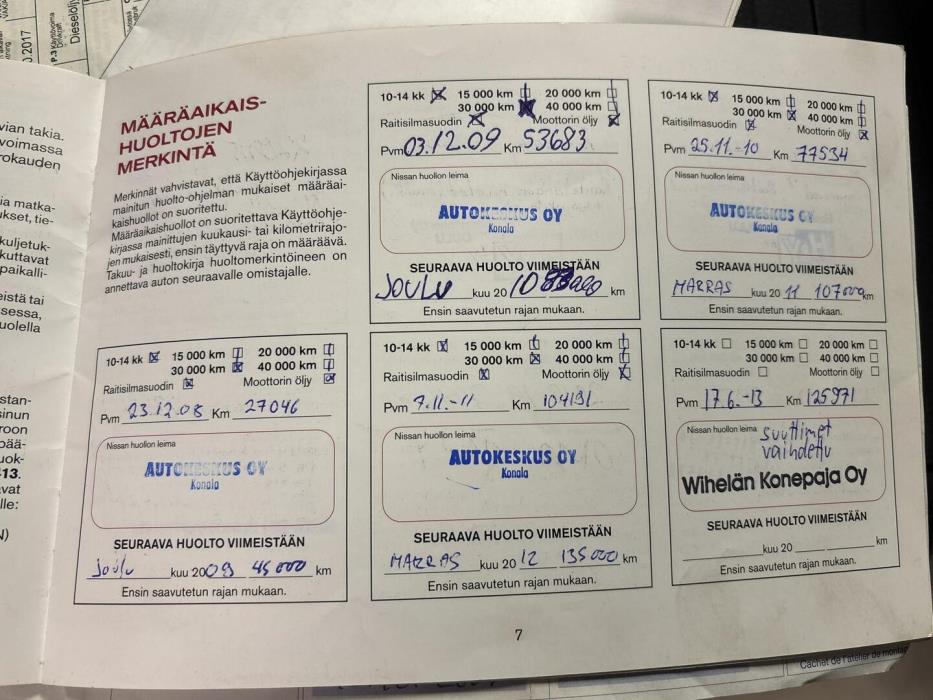 .2017
P.3 Käyttövoima
Drivkraft
Dieselöljy
vian takia.
voimassa
rokauden
ia matka-
ukset, tie-
kuljetuk-
kuttavat
paikalli-
eistä tai
sessa,
uolella
stan-
sinun
roon
pää-
uok-
13.
avat
lle:
MÄÄRÄAIKAIS-
HUOLTOJEN
MERKINTÄ
Merkinnät vahvistavat, että Käyttöohjekirjassa
mainitun huolto-ohjelman mukaiset määräai-
kaishuollot on suoritettu.
Määräaikaishuollot on suoritettava Käyttöohje-
kirjassa mainittujen kuukausi- tai kilometrirajo-
jen mukaisesti, ensin täyttyvä raja on määräävä.
Takuu- ja huoltokirja huoltomerkintöineen on
annettava auton seuraavalle omistajalle.
10-14 kk 15 000 km 20 000 km
30 000 km 40 000 km
Raitisilmasuodin Moottorin öljy
Pvm 23.12.08 Km 27046
Nissan huollon leima
AUTOKESKUS OY
Konala
SEURAAVA HUOLTO VIIMEISTÄÄN
Joulu kuu 2009 45000 km
Ensin saavutetun rajan mukaan.
10-14 kk 15 000 km 20 000 km
30 000 km 40 000 km
Raitisilmasuodin Moottorin öljy
Pvm 03.12.09 Km 53683
Nissan huollon leima
AUTOKESKUS OY
Konala
SEURAAVA HUOLTO VIIMEISTÄÄN
JOULU kuu 20 10 km
Ensin saavutetun rajan mukaan.
10-14 kk 15 000 km 20 000 km
30 000 km 40 000 km
Raitisilmasuodin Moottorin öljy
Pvm 7.11.-11 Km 104191
Nissan huollon leima
AUTOKESKUS OY
Konala
SEURAAVA HUOLTO VIIMEISTÄÄN
MARRAS kuu 20 12 135000 km
Ensin saavutetun rajan mukaan.
10-14 kk 15 000 km 20 000 km
30 000 km 40 000 km
Raitisilmasuodin Moottorin öljy
Pvm 25.11.-10 Km 77534
Nissan huollon leima
AUTOKESKUS OY
Konala
SEURAAVA HUOLTO VIIMEISTÄÄN
MARRAS kuu 20 11 107000 km
Ensin saavutetun rajan mukaan.
10-14 kk 15 000 km 20 000 km
30 000 km 40 000 km
Raitisilmasuodin Moottorin öljy
Pvm 17.6.-13 Km 125971
Nissan huollon leima
suuttimet
vaihdettu
Wihelän Konepaja Oy
SEURAAVA HUOLTO VIIMEISTÄÄN
kuu 20 km
Ensin saavutetun rajan mukaan.
7
Cachet de l'atelier de montag